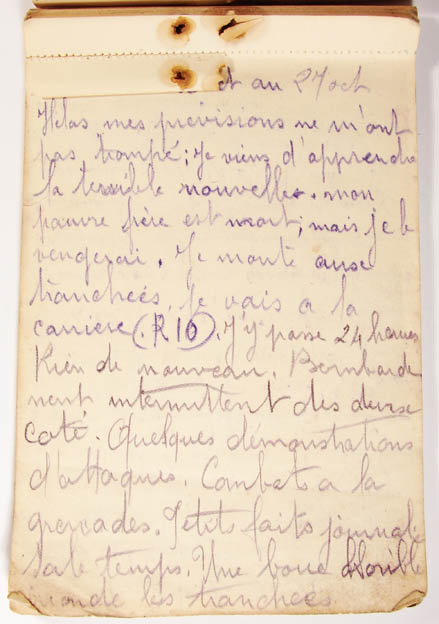 ct au 27 oct
Helas mes previsions ne m'ont
pas trompé; Je viens d'apprendre
la terrible nouvelle. mon
pauvre frère est mort; mais je le
vengerai. Je monte aux
tranchées. Je vais a la
carriere (R10). J'y passe 24 heures
Rien de nouveau. Bombarde
ment intermittent des deux
coté. Quelques démonstrations
d'attaques. Combats a la
grenades. Petits faits journali
Sale temps. Une boue horrible
inonde les tranchées.